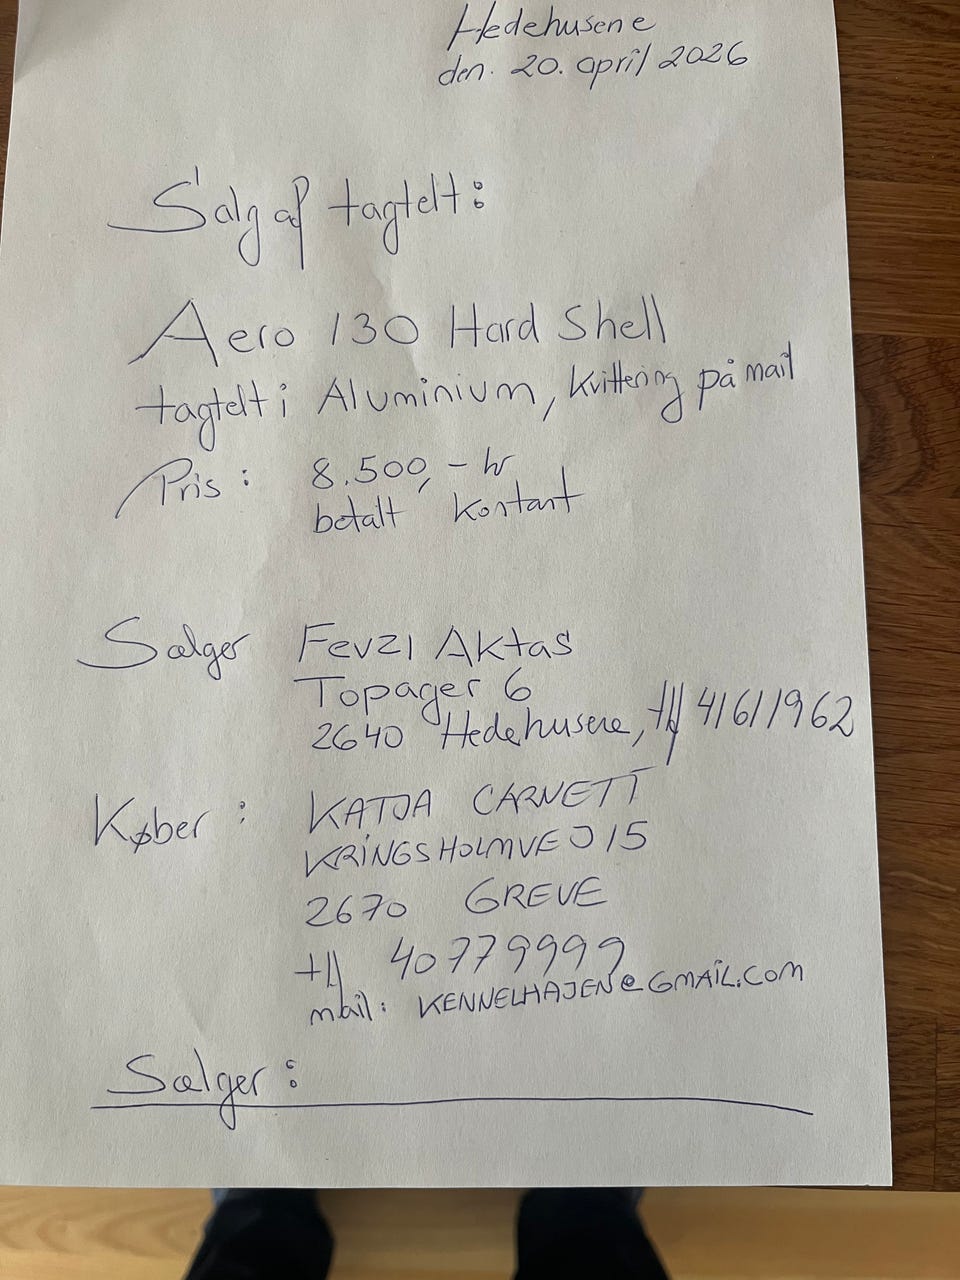 Hedehusene
den. 20. april 2026
Salg af tagtelt:
Aero 130 Hard Shell
tagtelt i Aluminium, kvittering på mail
Pris: 8.500,- kr
betalt kontant
Sælger Fevzi Aktas
Topager 6
2640 Hedehusene, tlf 41611962
Køber: KATJA CARNETT
KRINGSHOLMVEJ 15
2670 GREVE
tlf 40779999
mail: KENNELHAJEN@GMAIL.COM
Sælger: